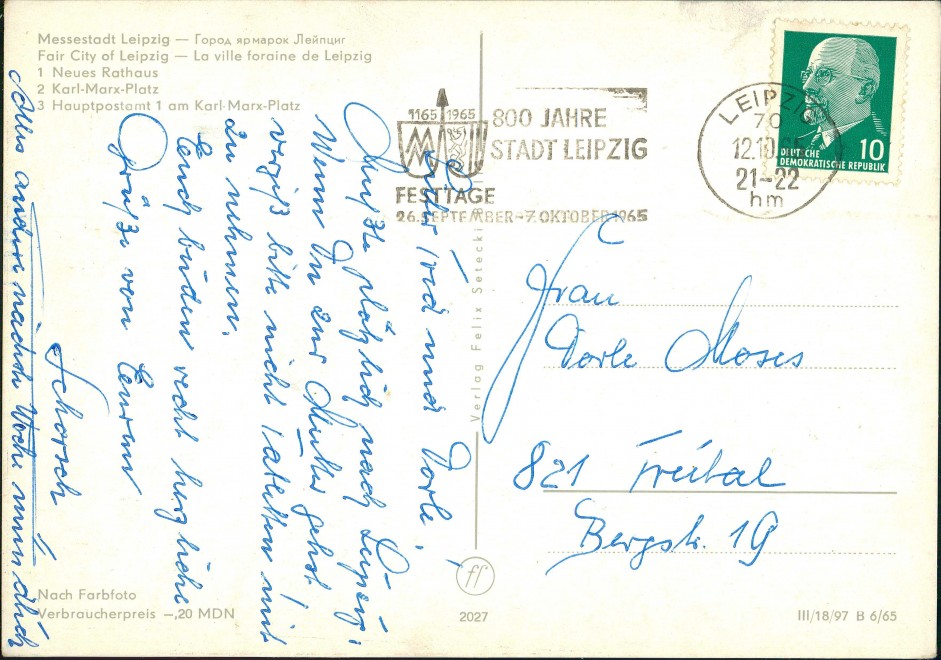 Messestadt Leipzig — Город ярмарок Лейпциг
Fair City of Leipzig — La ville foraine de Leipzig
1 Neues Rathaus
2 Karl-Marx-Platz
3 Hauptpostamt 1 am Karl-Marx-Platz
1165 1965
800 JAHRE
STADT LEIPZIG
FESTTAGE
26. SEPTEMBER–7. OKTOBER 1965
LEIPZIG
70
12.10.65
21–22
hm
DEUTSCHE
DEMOKRATISCHE REPUBLIK
10
und Dorle,
Mußte plötzlich nach Leipzig.
Wenn Du zur Mutter gehst
vergiß bitte nicht mit
zu nehmen.
Euch beiden recht herzliche
Grüße von Eurem
Schorsch
Alles andere nächste Woche mündlich
Frau
Dorle Moses
821 Freital
Bergstr. 19
Verlag Felix Setecki
ff
Nach Farbfoto
Verbraucherpreis –,20 MDN
2027
III/18/97 B 6/65